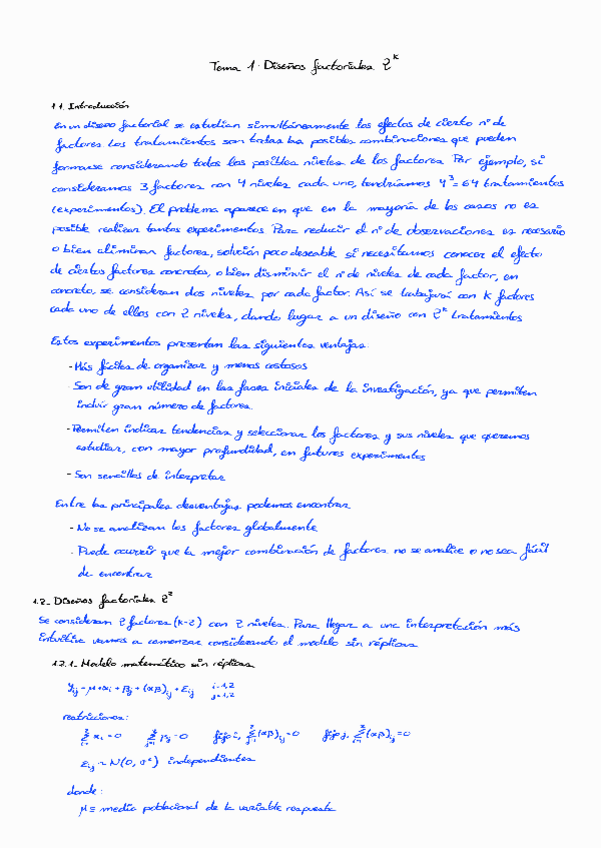 Tema 1. Diseños factoriales 2^k
1.1. Introducción
En un diseño factorial se estudian simultáneamente los efectos de cierto nº de
factores Los tratamientos son todas las posibles combinaciones que pueden
formarse considerando todos los posibles niveles de los factores Por ejemplo, si
consideramos 3 factores con 4 niveles cada uno, tendríamos 4^3 = 64 tratamientos
(experimentos). El problema aparece en que en la mayoría de los casos no es
posible realizar tantos experimentos Para reducir el nº de observaciones es necesario
o bien eliminar factores, solución poco deseable si necesitamos conocer el efecto
de ciertos factores concretos, o bien disminuir el nº de niveles de cada factor, en
concreto, se consideran dos niveles por cada factor. Así se trabajará con K factores
cada uno de ellos con 2 niveles, dando lugar a un diseño con 2^k tratamientos
Estos experimentos presentan las siguientes ventajas:
- Más fáciles de organizar y menos costosos
- Son de gran utilidad en las fases iniciales de la investigación, ya que permiten
incluir gran número de factores.
- Permiten indicar tendencias y seleccionar los factores y sus niveles que queremos
estudiar, con mayor profundidad, en futuros experimentos
- Son sencillos de interpretar
Entre las principales desventajas podemos encontrar
- No se analizan los factores globalmente
- Puede ocurrir que la mejor combinación de factores no se analice o no sea fácil
de encontrar
1.2_ Diseños factoriales 2^2
Se consideran 2 factores (k=2) con 2 niveles. Para llegar a una interpretación más
intuitiva vamos a comenzar considerando el modelo sin réplicas
1.2.1. Modelo matemático sin réplicas
y_ij = μ + α_i + β_j + (αβ)_ij + ε_ij i=1,2 j=1,2
restricciones:
Σ α_i = 0 Σ β_j = 0 fijo i, Σ (αβ)_ij = 0 fijo j, Σ (αβ)_ij = 0
ε_ij ~ N(0, σ²) independientes
donde:
μ ≡ media poblacional de la variable respuesta